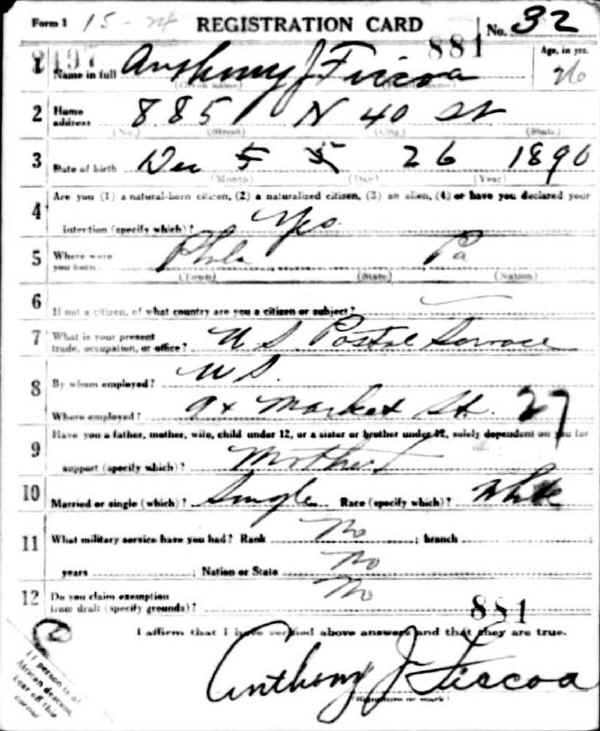 Form 1 15-24 REGISTRATION CARD No. 32
881
1 Name in full Anthony J Fiscoa Age, in yrs. 26
2 Home address 885 N 40 St
(No.) (Street) (City) (State)
3 Date of birth Dec 26 1890
(Month) (Day) (Year)
4 Are you (1) a natural-born citizen, (2) a naturalized citizen, (3) an alien, (4) or have you declared your
intention (specify which)? Yes
5 Where were you born? Phila Pa
(Town) (State) (Nation)
6 If not a citizen, of what country are you a citizen or subject?
7 What is your present trade, occupation, or office? U S Postal Service
8 By whom employed? U S.
Where employed? 9x Market St. 27
9 Have you a father, mother, wife, child under 12, or a sister or brother under 12, solely dependent on you for
support (specify which)? Mother
10 Married or single (which)? Single Race (specify which)? White
11 What military service have you had? Rank No ; branch
years ; Nation or State No
12 Do you claim exemption from draft (specify grounds)? No
881
I affirm that I have verified above answers and that they are true.
Anthony J Fiscoa
(Signature or mark)
If person is of
African descent,
tear off this
corner